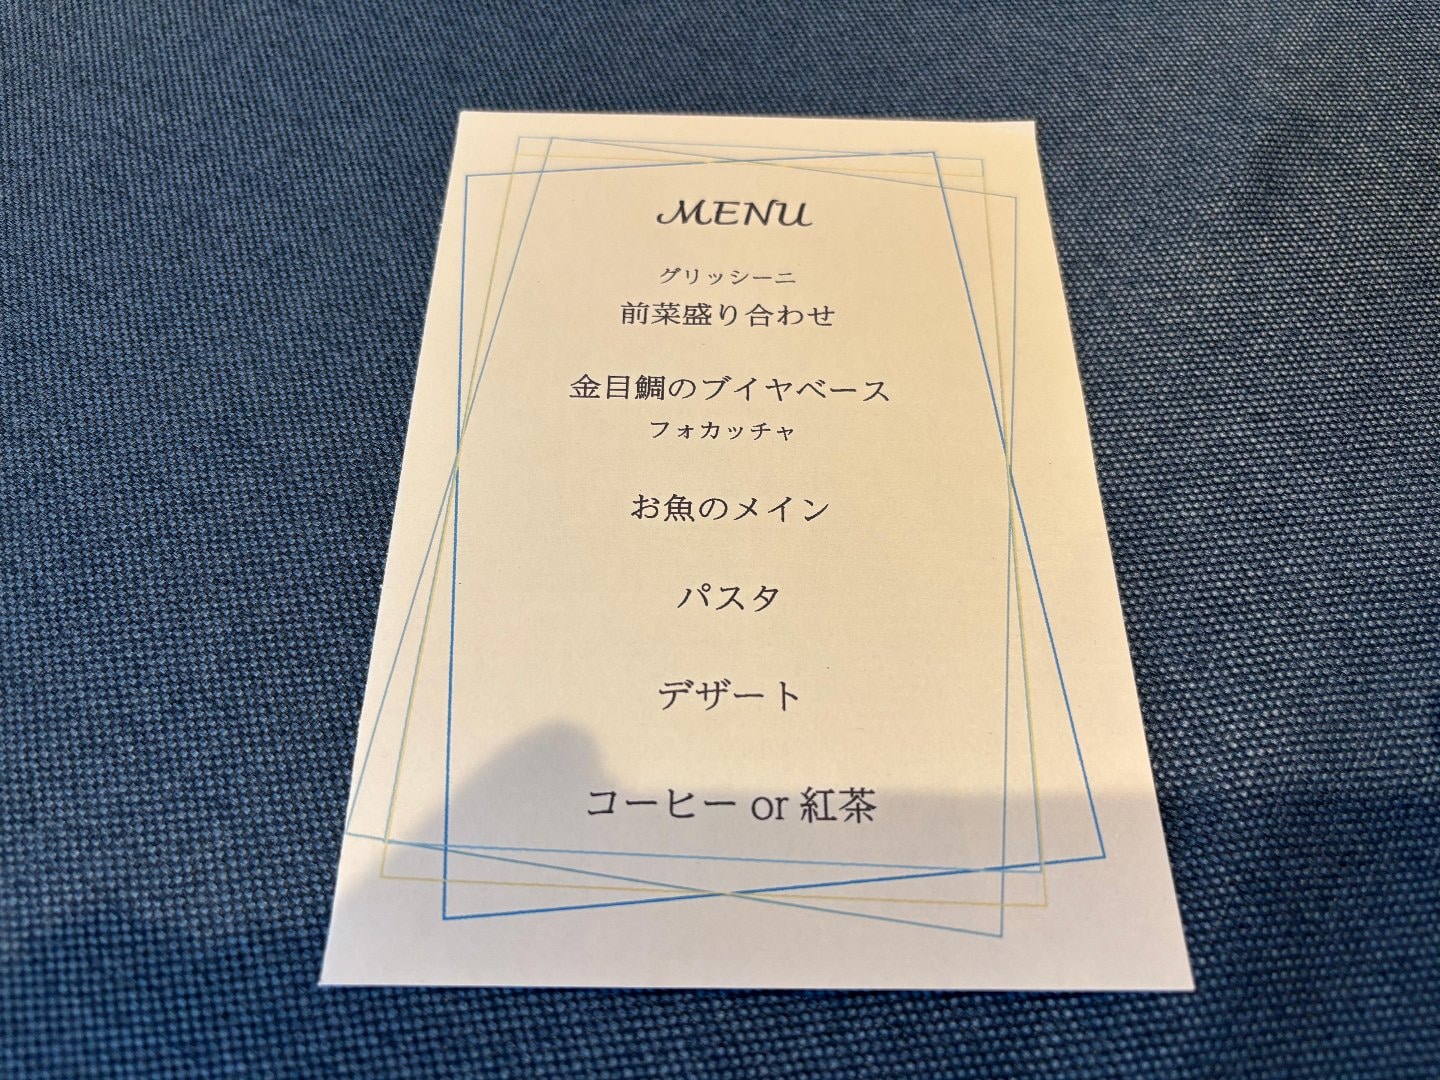 MENU
グリッシーニ
前菜盛り合わせ
金目鯛のブイヤベース
フォカッチャ
お魚のメイン
パスタ
デザート
コーヒー or 紅茶